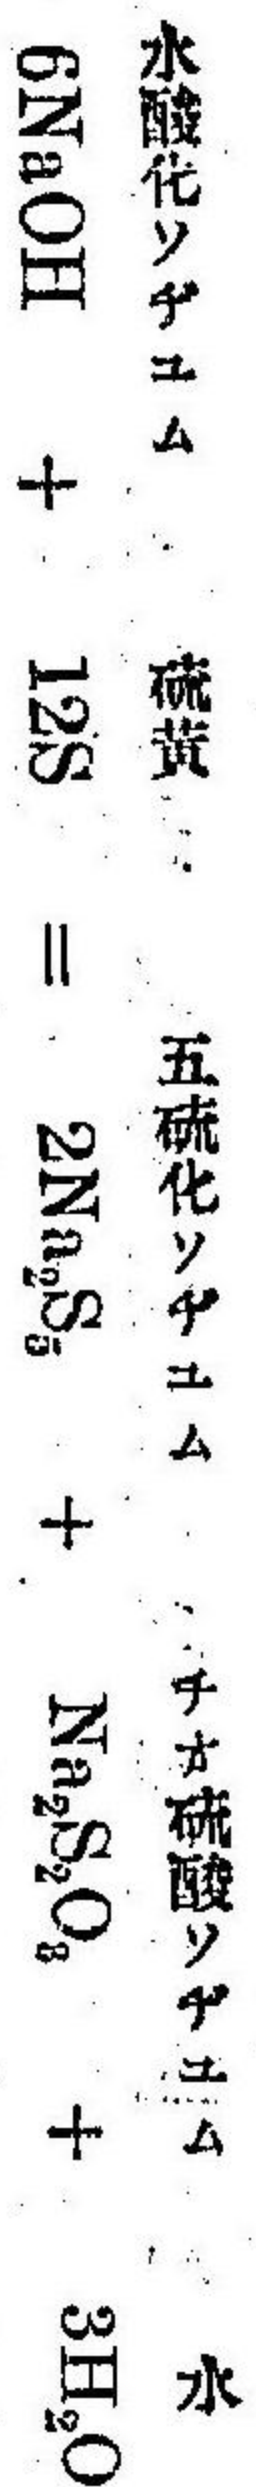 水酸化ソヂユム 硫黄 五硫化ソヂユム チオ硫酸ソヂユム 水
6NaOH + 12S = 2Na₂S₅ + Na₂S₂O₃ + 3H₂O